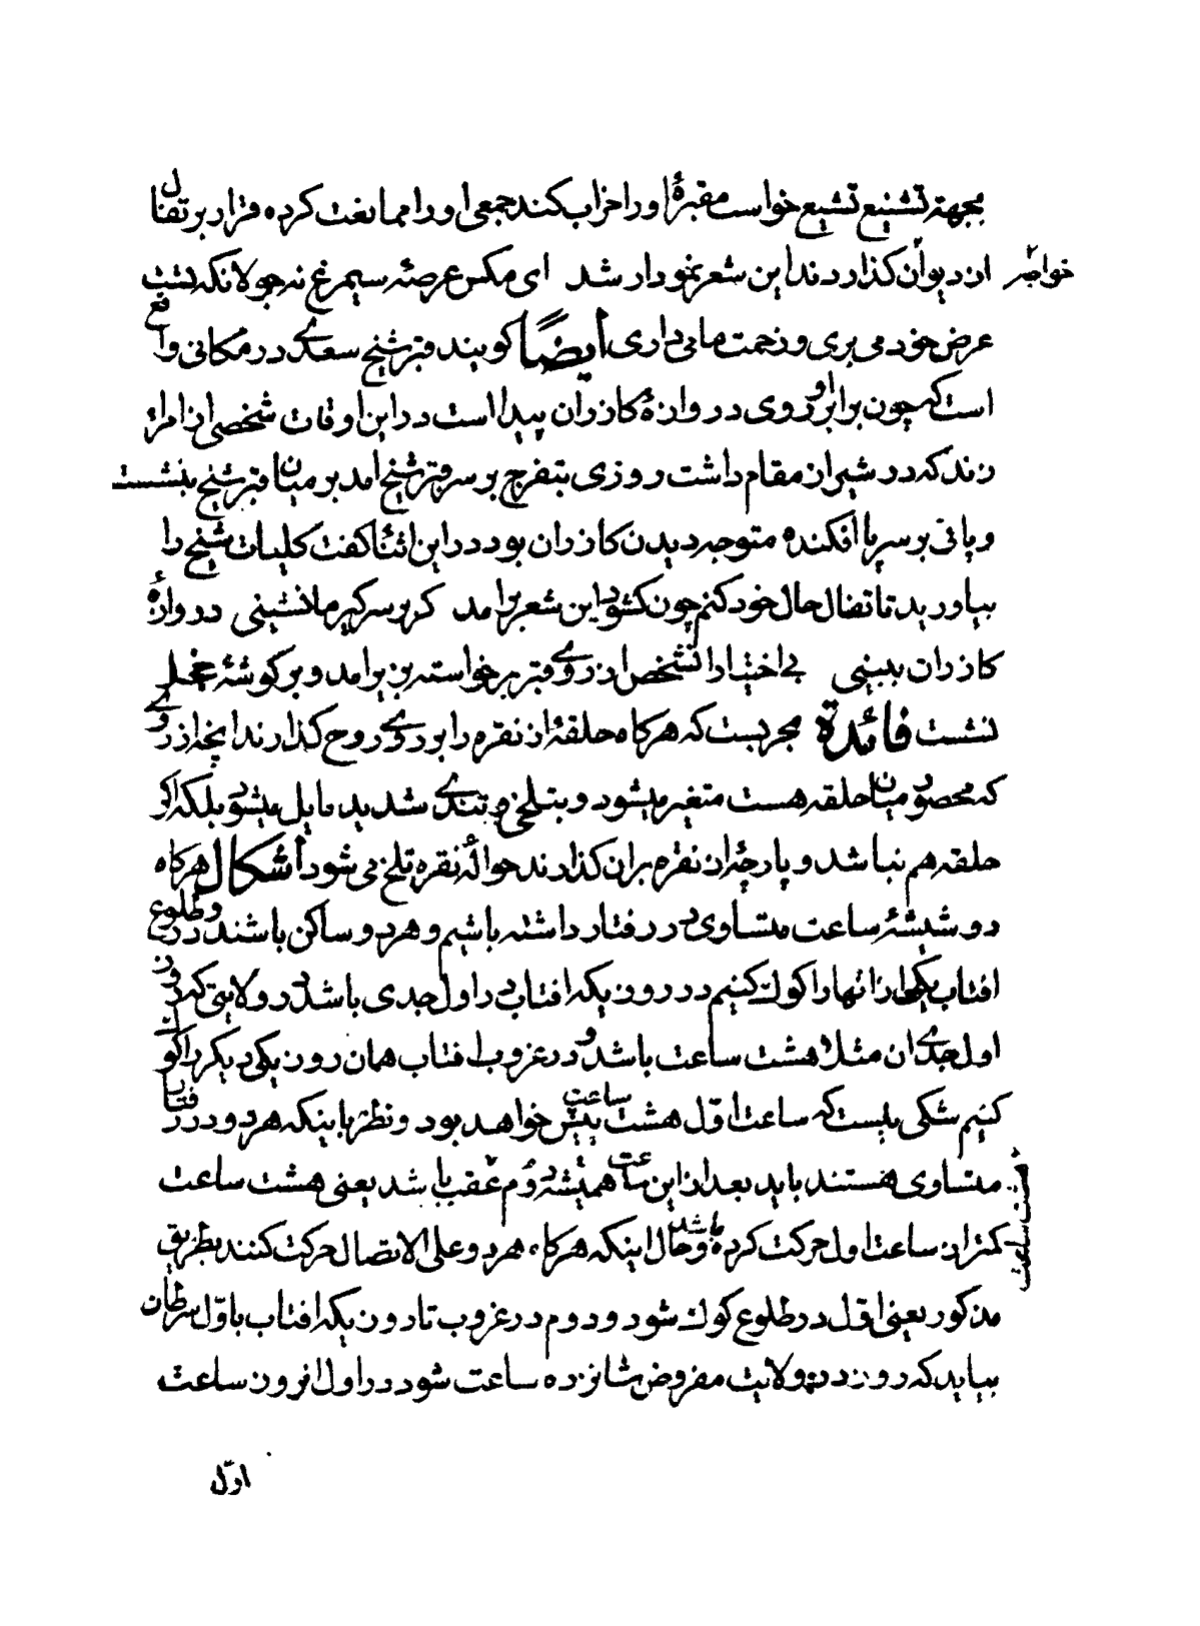 بجهة تشنیع تشیع خواست مقبرۀ او را خراب کند جمعی او را ممانعت کرده قرار بر تفال
از دیوان گذاردند این شعر نمودار شد ای مگس عرصهٔ سیمرغ نه جولانگه تست
خواجه
عرض خود می بری و زحمت ما میداری أیضًا گویند قبر شیخ سعدی در مکانی واقع
است که چون برابر او روی دروازۀ کازران پیدا است در این اوقات شخصی از امراء
زند که در شیراز مقام داشت روزی بتفرج بر سر قبر شیخ امد بر میان قبر شیخ بنشست
و پائی بر سر پا افکنده متوجه دیدن کازران بود در این اثنا گفت کلیات شیخ را
بیاورید تا تفال حال خود کنم چون گشود این شعر برامد گر بر سر گیر ما نشینی دروازۀ
کازران ببینی بی اختیار انشخص از روی قبر برخواسته بزیر امد و بر گوشهٔ
نشست فائدة مجربست که هرگاه حلقهٔ از نقره را بر روی روح گذارند انچه از روی
که محصور میان حلقه هست متغیر میشود و بتلخی و تندی شدید مایل میشود بلکه اگر
حلقه هم نباشد و پارچه از نقره بر ان گذارند حوالی نقره تلخ می شود أشکال هرگاه
دو شیشهٔ ساعت متساوی در رفتار داشته باشیم و هر دو ساکن باشند و در طلوع
افتاب یکی از انها را کوک کنیم در روزیکه افتاب در اول جدی باشد در ولایتی که روز
اول جدی ان مثلا هشت ساعت باشد و در غروب افتاب همان روز یکی دیگر را کوک
کنیم شکی نیست که ساعت اوّل هشت ساعت پیش خواهد بود و نظر باینکه هر دو در رفتار
متساوی هستند باید بعد از این ساعت همیشه دوم عقب باشد یعنی هشت ساعت
کمتر از ساعت اول حرکت کرده باشد و حال اینکه هرگاه هر دو علی الاتصال حرکت کنند بطریق
هشت ساعت
مذکور یعنی اوّل در طلوع کوک شود و دوم در غروب تا روزیکه افتاب باوّل سرطان
بیاید که روز در ولایت مفروض شانزده ساعت شود در اول انروز ساعت
اوّل